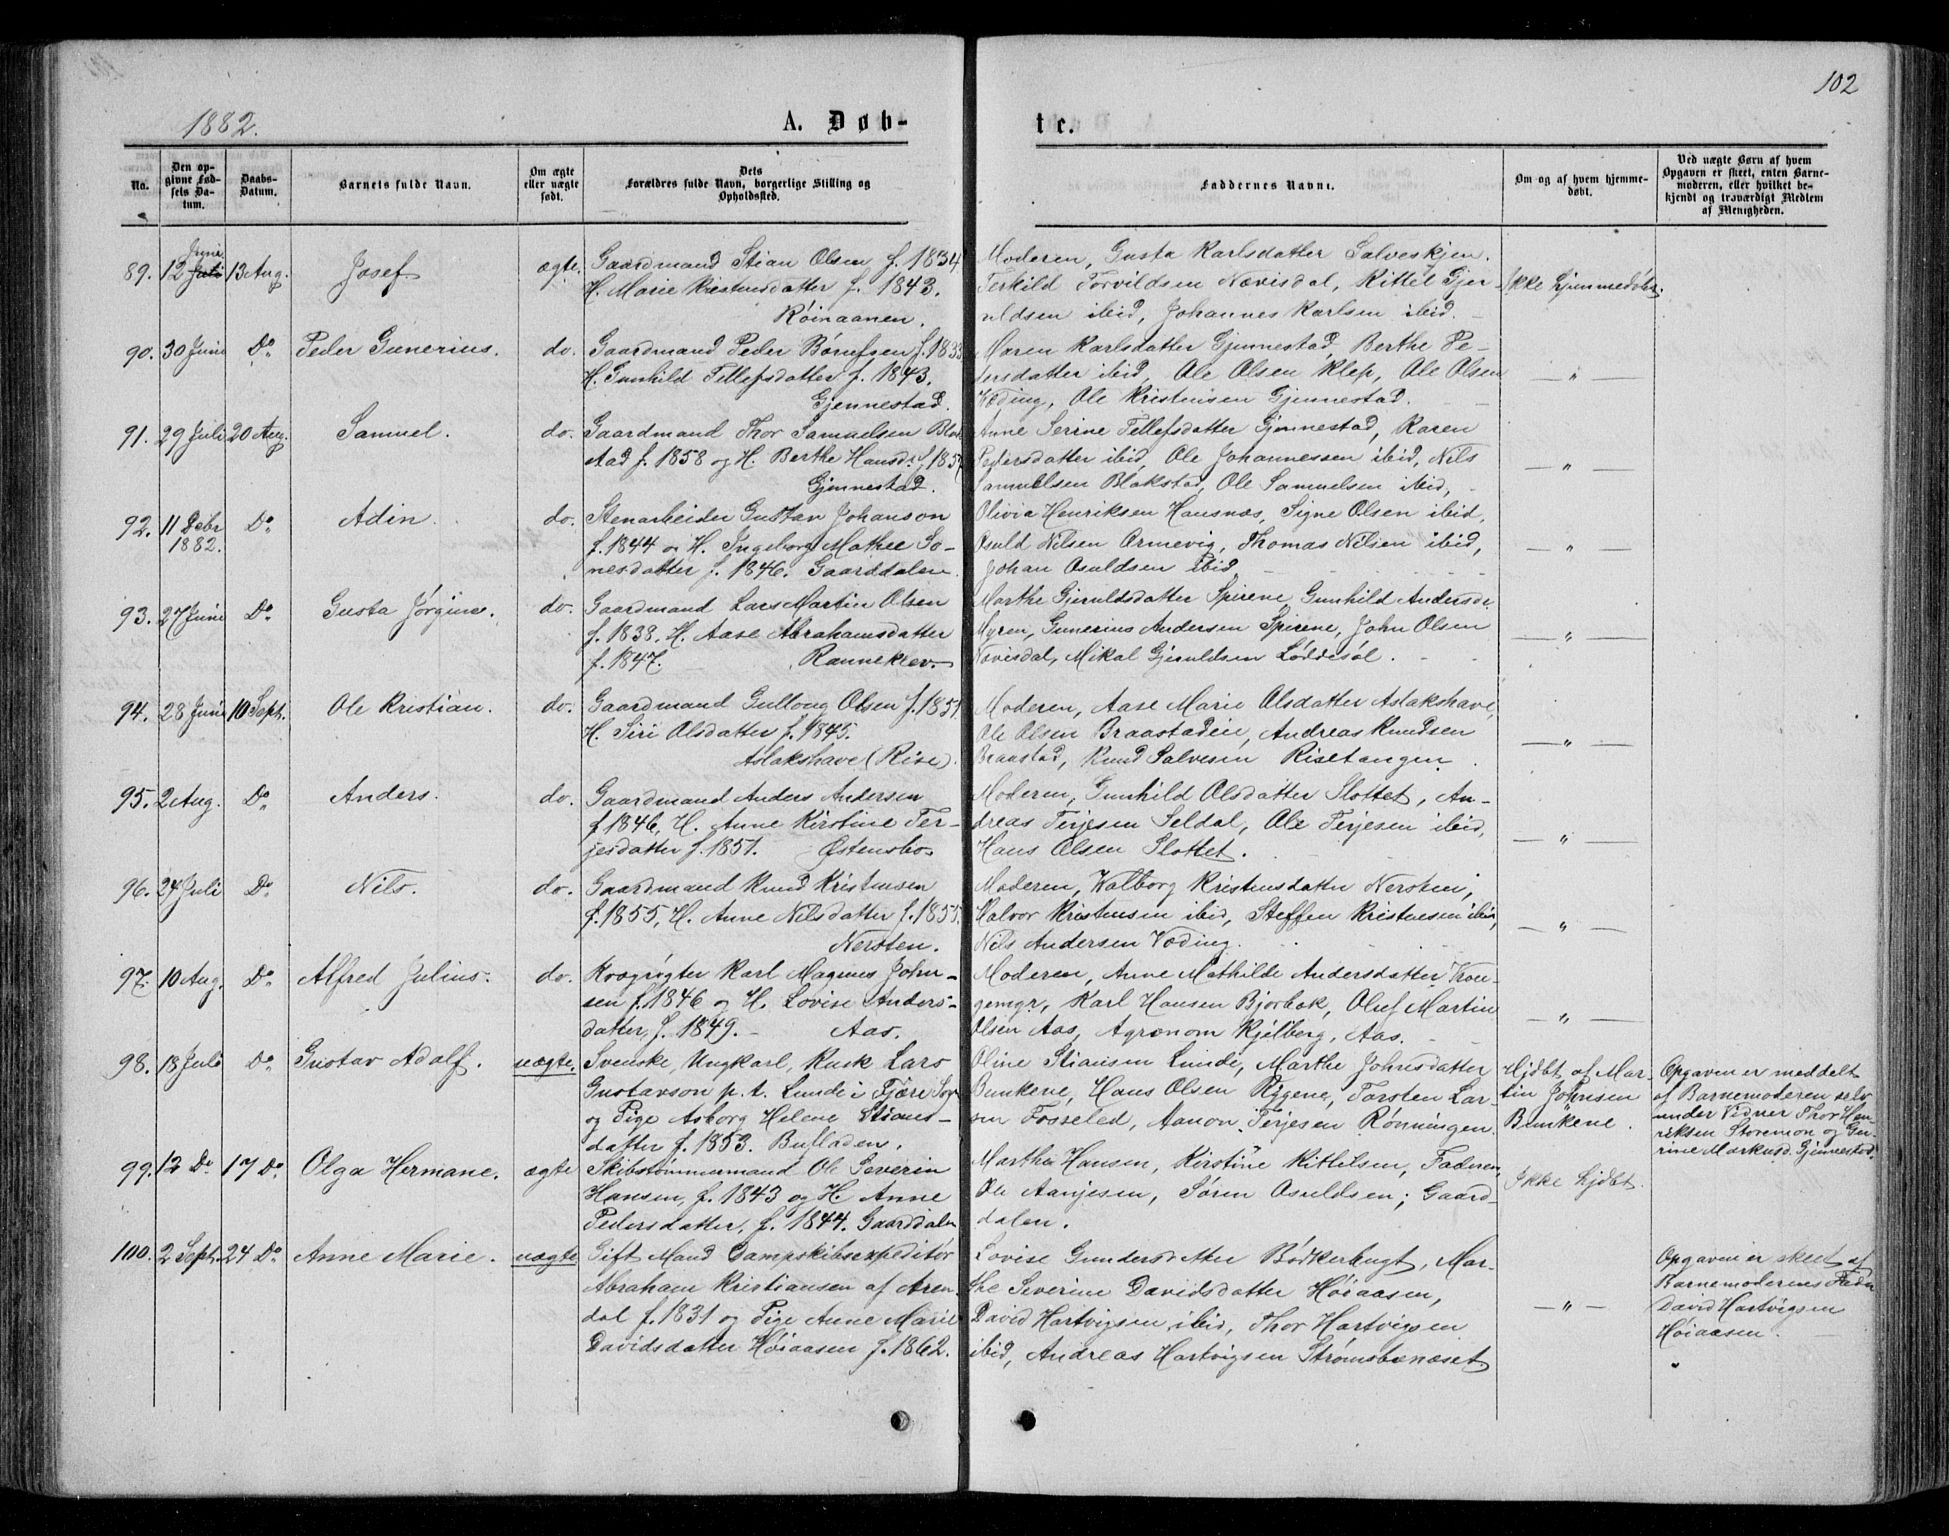 102
1882.
A. Døb-
te.
No.
Den op-
givne Fød-
sels Da-
tum.
Daabs-
Datum.
Barnets fulde Navn.
Om ægte
eller uægte
født.
Dets
Forældres fulde Navn, borgerlige Stilling og
Opholdssted.
Faddernes Navne.
Om og af hvem hjemme-
døbt.
Ved uægte Børn af hvem
Opgaven er skeet, enten Barne-
moderen, eller hvilket be-
kjendt og troværdigt Medlem
af Menigheden.
89. 12 Juni Juli 13 Aug. Josef ægte. Gaardmand Stian Olsen f. 1834
H. Marie Kristensdatter f. 1843.
Röinaanen.
Moderen, Gusta Karlsdatter Salveskjen.
Terkild Torvildsen Nævisdal, Kittel Gjer-
uldsen ibid, Johannes Karlsen ibid.
Ikke hjemmedöbt.
90. 30 Juni Do Peder Gunerius. do. Gaardmand Peder Börufsen f. 1833
H. Gunhild Tellefsdatter f. 1843.
Gjennestad.
Maren Karlsdatter Gjennestad, Berthe Pe-
dersdatter ibid, Ole Olsen Klep, Ole Olsen
Væding, Ole Kristensen Gjennestad.
— " —
91. 29 Juli 20 Aug. Samuel. do. Gaardmand Thor Samuelsen Blak-
stad f. 1858 og H. Berthe Hansdr. f. 1857
Gjennestad.
Anne Serine Tellefsdatter Gjennestad, Karen
Pedersdatter ibid, Ole Johannessen ibid, Nils
Samuelsen Blakstad, Ole Samuelsen ibid,
— " —
92. 11 Febr 1882. Do Adin. do. Stenarbeider Gustav Johanson
f. 1844 og H. Ingeborg Mathee So-
nesdatter f. 1846. Gaarddalen.
Olivia Henriksen Hausnæs, Signe Olsen ibid,
Osuld Nilsen Ormevig, Thomas Nilsen ibid,
Johan Osuldsen ibid
— " —
93. 27 Juni Do Gusta Jörgine. do. Gaardmand Lars Martin Olsen
f. 1838. H. Aase Abrahamsdatter
f. 1847. Ranneklev.
Marthe Gjeruldsdatter Spirene, Gunhild Andersdr.
Myren, Gunerius Andersen Spirene, John Olsen
Nævisdal, Mikal Gjeruldsen Löddesöl.
— " —
94. 28 Juni 10 Sept. Ole Kristian. do. Gaardmand Gullong Olsen f. 1851
H. Siri Olsdatter f. 1845.
Aslakshave (Rise).
Moderen, Aase Marie Olsdatter Aslakshave,
Ole Olsen Braastadeie, Andreas Knudsen
Braastad, Knud Salvesen Risetangen.
— " —
95. 2 Aug. Do Anders. do. Gaardmand Anders Andersen
f. 1846, H. Anne Kirstine Ter-
jesdatter f. 1851. Östensbo.
Moderen, Gunhild Olsdatter Slottet, An-
dreas Terjesen Seldal, Ole Terjesen ibid,
Hans Olsen Slottet.
— " —
96. 24 Juli Do Nils. do. Gaardmand Knud Kristensen
f. 1855, H. Anne Nilsdatter f. 1855.
Nersten.
Moderen, Valborg Kristensdatter Nersten,
Halvor Kristensen ibid, Steffen Kristensen ibid,
Nils Andersen Væding.
— " —
97. 10 Aug. Do Alfred Julius. do. Kvægrögter Karl Magnus John-
sen f. 1846 og H. Lovise Anders-
datter, f. 1849. Aas.
Moderen, Anne Mathilde Andersdatter Vran-
gemyr, Karl Hansen Bjorbæk, Oluf Martin
Olsen Aas, Agronom Kjelberg, Aas.
— " —
98. 18 Juli Do Gustav Adolf. uægte. Svenske, Ungkarl, Kusk Lars
Gustavson p. t. Lunde i Fjære Sogn
og Pige Asborg Helene Stians-
datter f. 1853. Bulladen.
Oline Stiansen Lunde, Marthe Johnsdatter
Bunkene, Hans Olsen Rygene, Torsten Lar-
sen Fosselod, Aanon Terjesen Rönningen.
Hjdbt af Mar-
tin Johnsen
Bunkene.
Opgaven er meddelt
af Barnemoderen selv
under Vidner Thor Hen-
riksen Storemon og Gu-
rine Markusd. Gjennestad.
99. 12 Do 17 Do Olga Hermane. ægte Skibstömmermand Ole Severin
Hansen, f. 1843 og H Anne
Pedersdatter, f. 1844. Gaarddalen
Marthe Hansen, Kirstine Kittilsen, Faderen,
Ole Aanjesen, Sören Osuldsen; Gaard-
dalen.
Ikke hjdbt.
100. 2 Sept. 24 Do Anne Marie. uægte Gift Mand Dampskibsexpeditör
Abraham Kristiansen af Aren-
dal f. 1831 og Pige Anne Marie
Davidsdatter Höiaasen f. 1862.
Lovise Gundersdatter Bödkerbugt, Mar-
the Severine Davidsdatter Höiaasen,
David Hartvigsen ibid, Thor Hartvigsen
ibid, Andreas Hartvigsen Strömsbonæset.
— " —
Opgaven er skeet af
Barnemoderens Fader
David Hartvigsen
Höiaasen.